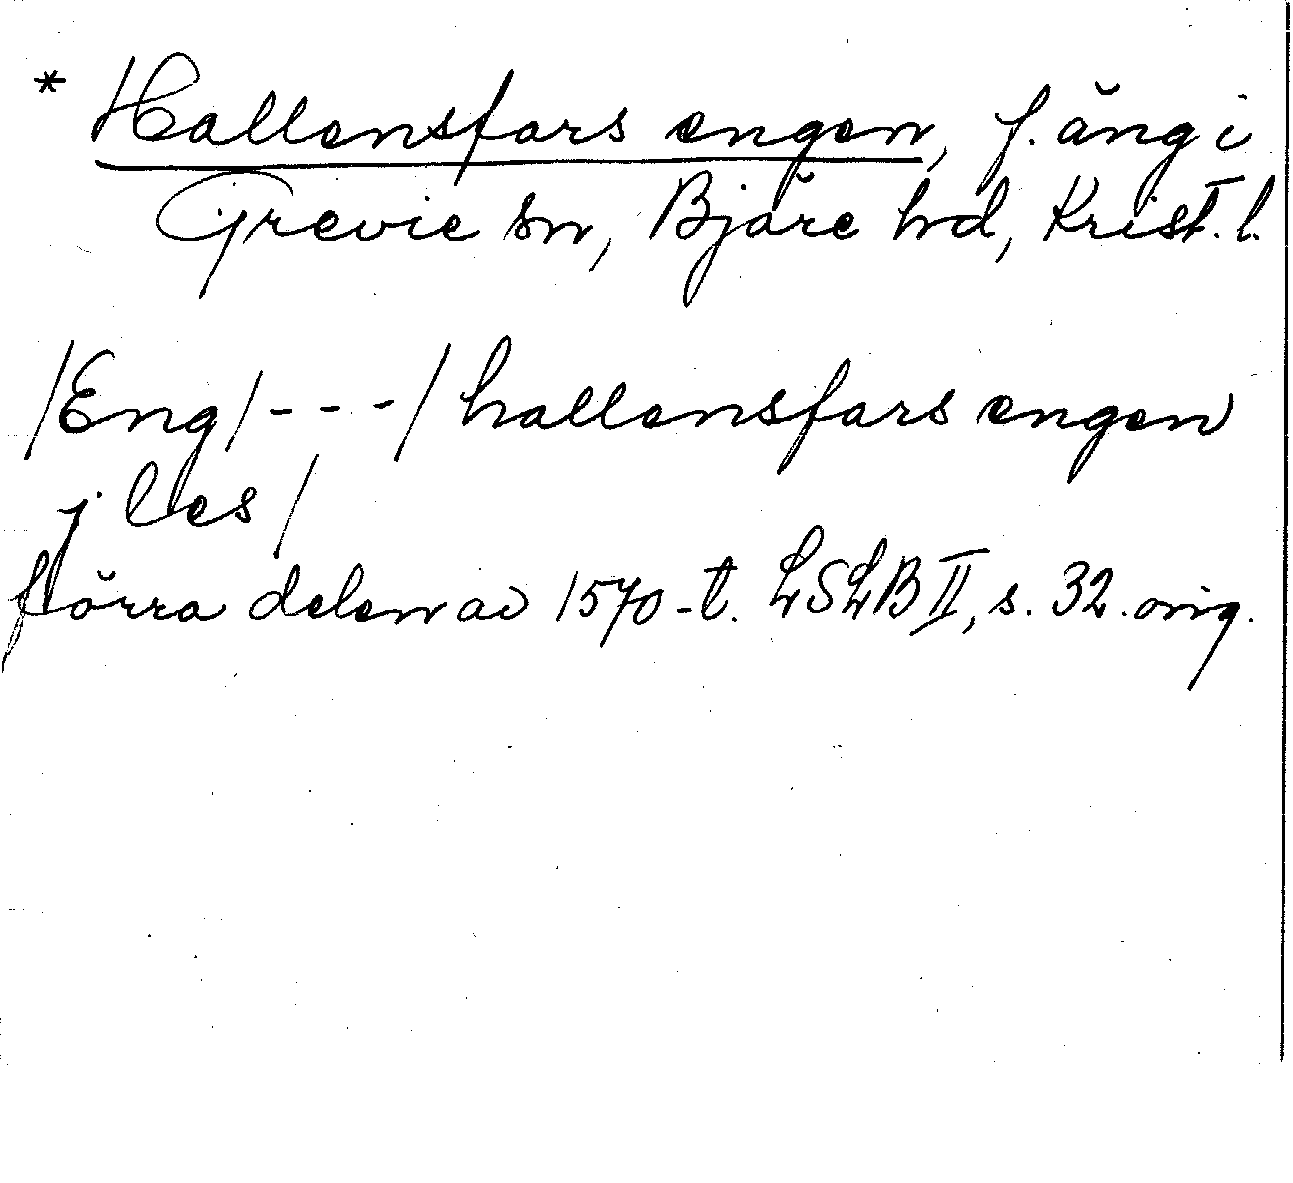 * Hallensfars engen, f. äng i
Grevie sn, Bjäre hd, Krist. l.
/Eng/---/ hallensfars engen
j lles/
förra delen av 1570-t. LSLB II, s. 32. orig.